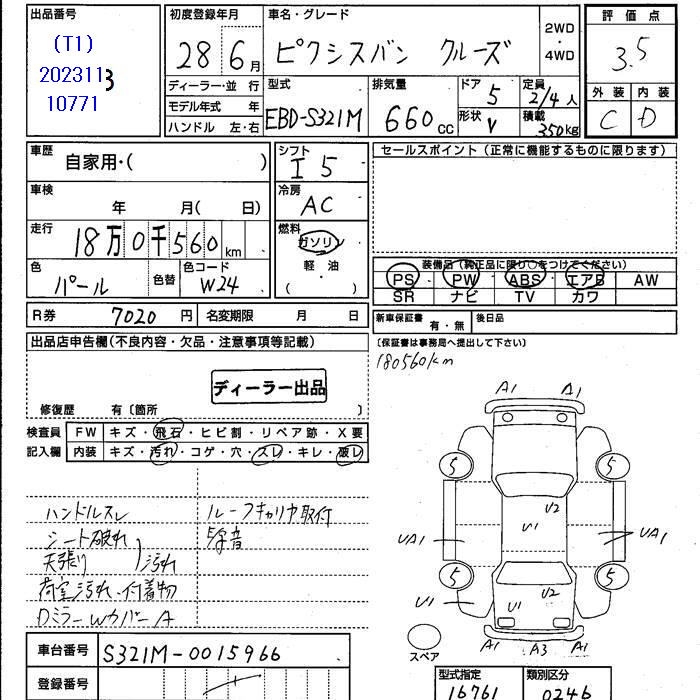 出品番号
(T1)
202311
10771
初度登録年月
28 6月
車名・グレード
ピクシスバン クルーズ
2WD
・
4WD
評価点
3.5
外装 内装
C D
ディーラー・並行
モデル年式 年
ハンドル 左・右
型式
EBD-S321M
排気量
660cc
ドア
5
形状
V
定員
2/4人
積載
350kg
車歴
自家用・( )
車検
年 月( 日)
走行
18万0千560km
色
パール
色替
色コード
W24
シフト
I5
冷房
AC
燃料
ガソリン
軽・油
( )
セールスポイント(正常に機能するものに限ります)
装備品(純正品に限り○をつけてください)
PS PW ABS エアB AW
SR ナビ TV カワ
R券 7020円 名変期限 月 日
新車保証書 有・無 後日品
(保証書は事務局へ提出して下さい)
180560km
出品店申告欄(不良内容・欠品・注意事項等記載)
ディーラー出品
修復歴 有〔箇所 〕
検査員
記入欄
FW キズ・飛石・ヒビ割・リペア跡・X要
内装 キズ・汚れ・コゲ・穴・スレ・キレ・破レ
ハンドルスレ
シート破れ
天張り
汚れ
荷室汚れ、付着物
DミラーWカバーA
ルーフキャリヤ取付
A1 A1
5 5
V2
V1
UA1 UA1
5 5
U1 V2
U1
A1 A3 A1
スペア
車台番号 S321M-0015966
登録番号
型式指定 類別区分
16761 0246